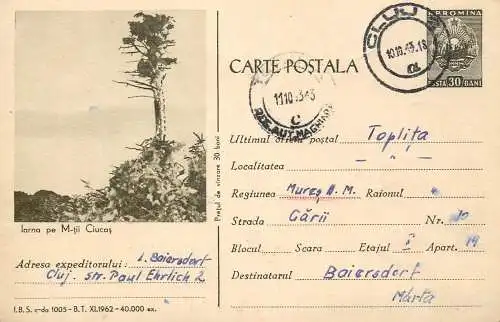 CLUJ
10.10.63.18
R.P. ROMINA
POSTA 30 BANI
CARTE POȘTALA
11 10 63
C
REG. AUT. MAGHIARĂ
Prețul de vînzare 30 bani
Iarna pe M-ții Ciucaș
Adresa expeditorului: I. Baiersdorf
Cluj, str. Paul Ehrlich 2
I.B.S. c-da 1005 - B.T. XI.1962 - 40.000 ex.
Ultimul oficiu poștal Toplița
Localitatea - " -
Regiunea Mureș A. M. Raionul
Strada Gării Nr. 10
Blocul Scara Etajul I Apart. 19
Destinatarul Baiersdorf
Márta